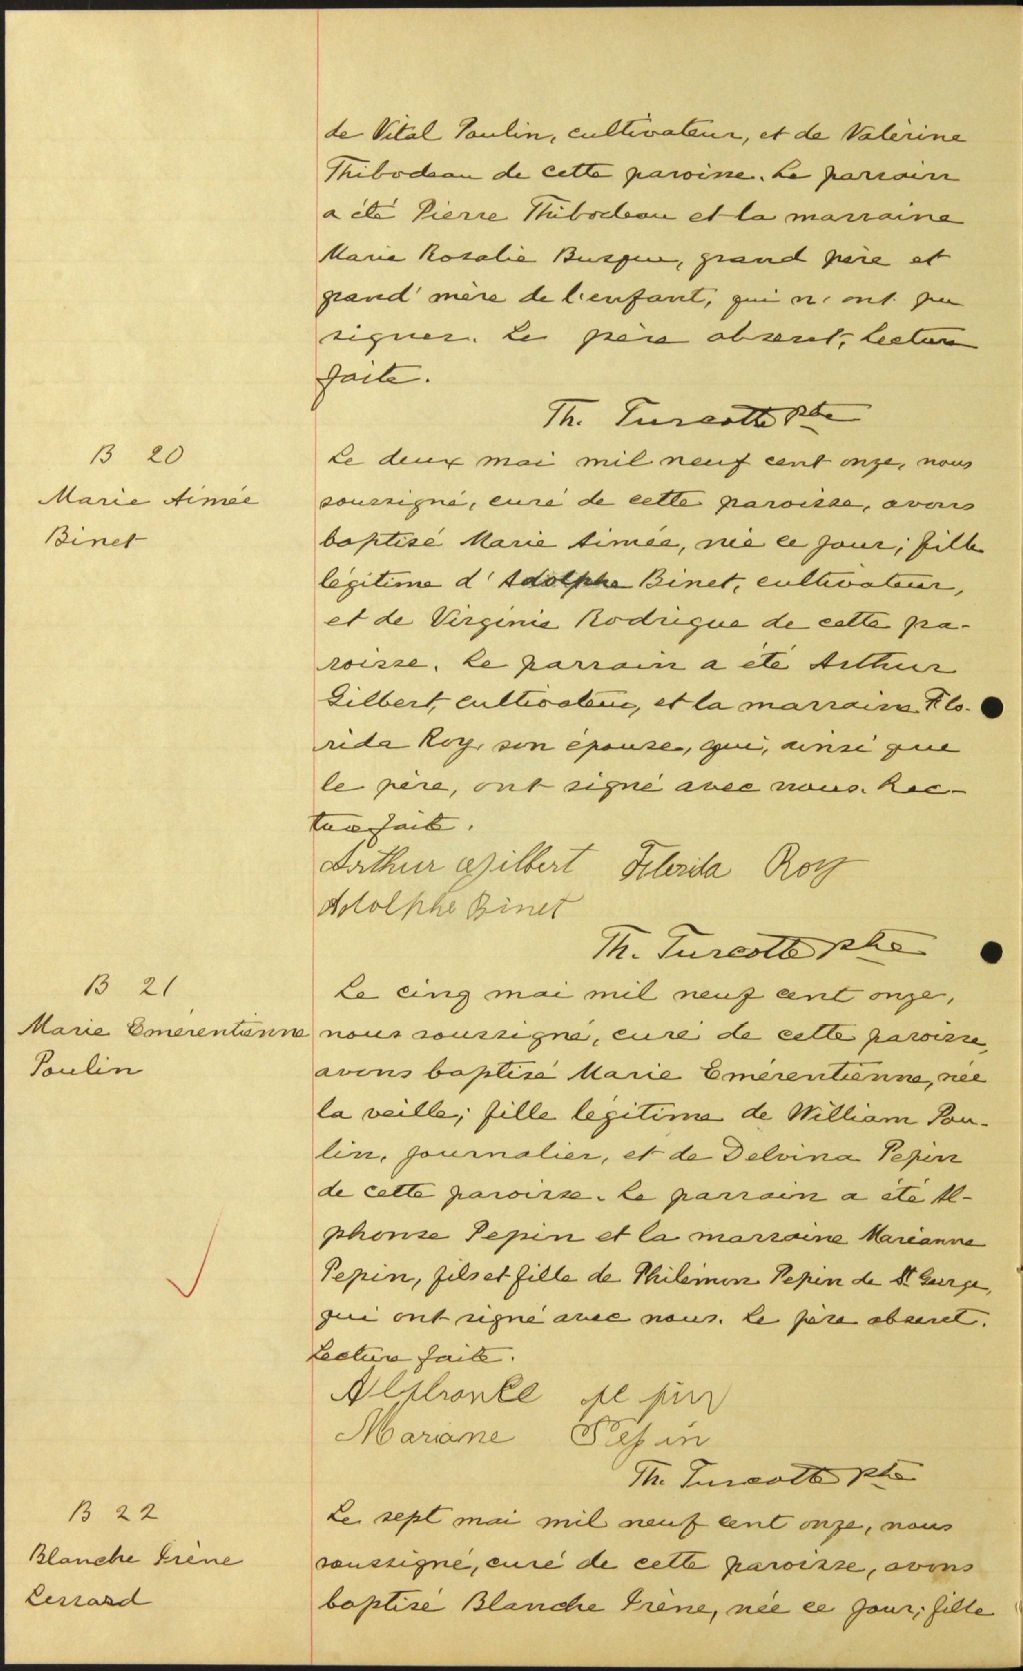 de Vital Poulin, cultivateur, et de Valérine
Thibodeau de cette paroisse. Le parrain
a été Pierre Thibodeau et la marraine
Marie Rosalie Busque, grand père et
grand' mère de l'enfant, qui n'ont pu
signer. Le père absent, Lecture
faite.
Th. Turcotte Ptre
B 20
Marie Aimée
Binet
Le deux mai mil neuf cent onze, nous
soussigné, curé de cette paroisse, avons
baptisé Marie Aimée, née ce jour; fille
légitime d'Adolphe Binet, cultivateur,
et de Virginie Rodrigue de cette pa-
roisse. Le parrain a été Arthur
Gilbert, cultivateur, et la marraine Flo-
rida Roy, son épouse, qui, ainsi que
le père, ont signé avec nous. Lec-
ture faite.
Arthur Gilbert Florida Roy
Adolphe Binet
Th. Turcotte ptre
B 21
Marie Emérentienne
Poulin
Le cinq mai mil neuf cent onze,
nous soussigné, curé de cette paroisse,
avons baptisé Marie Emérentienne, née
la veille; fille légitime de William Pou-
lin, journalier, et de Delvina Pepin
de cette paroisse. Le parrain a été Al-
phonse Pepin et la marraine Marianne
Pepin, fils et fille de Philémon Pepin de St George,
qui ont signé avec nous. Le père absent.
Lecture faite.
Alphonse pepin
Mariane Pepin
Th. Turcotte ptre
B 22
Blanche Irène
Lessard
Le sept mai mil neuf cent onze, nous
soussigné, curé de cette paroisse, avons
baptisé Blanche Irène, née ce jour; fille